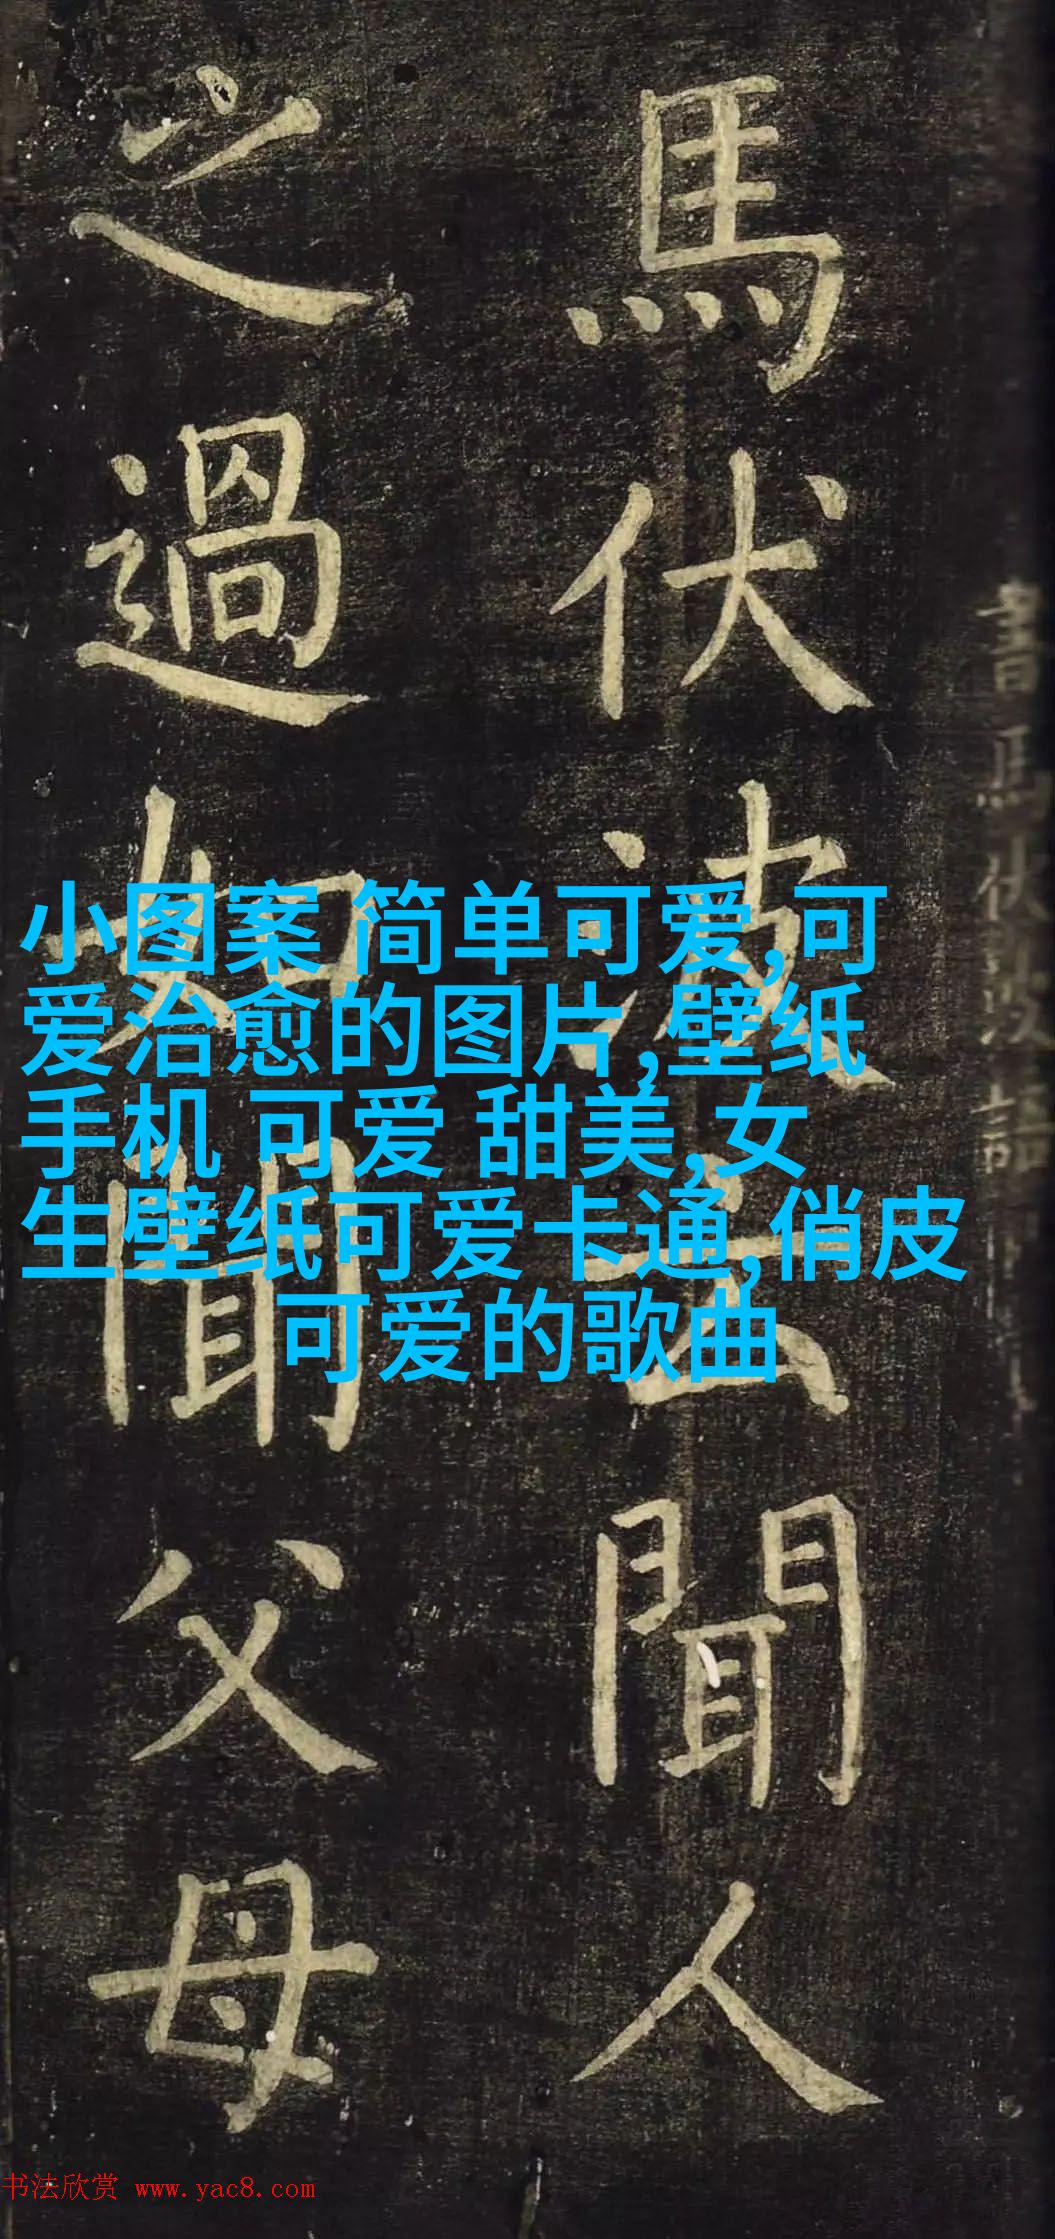 馬伏波云聞人
之過如聞父母
小图案 简单可爱,可
爱治愈的图片,壁纸
手机 可爱 甜美,女
生壁纸可爱卡通,俏皮
可爱的歌曲
书法欣赏 www.yac8.com